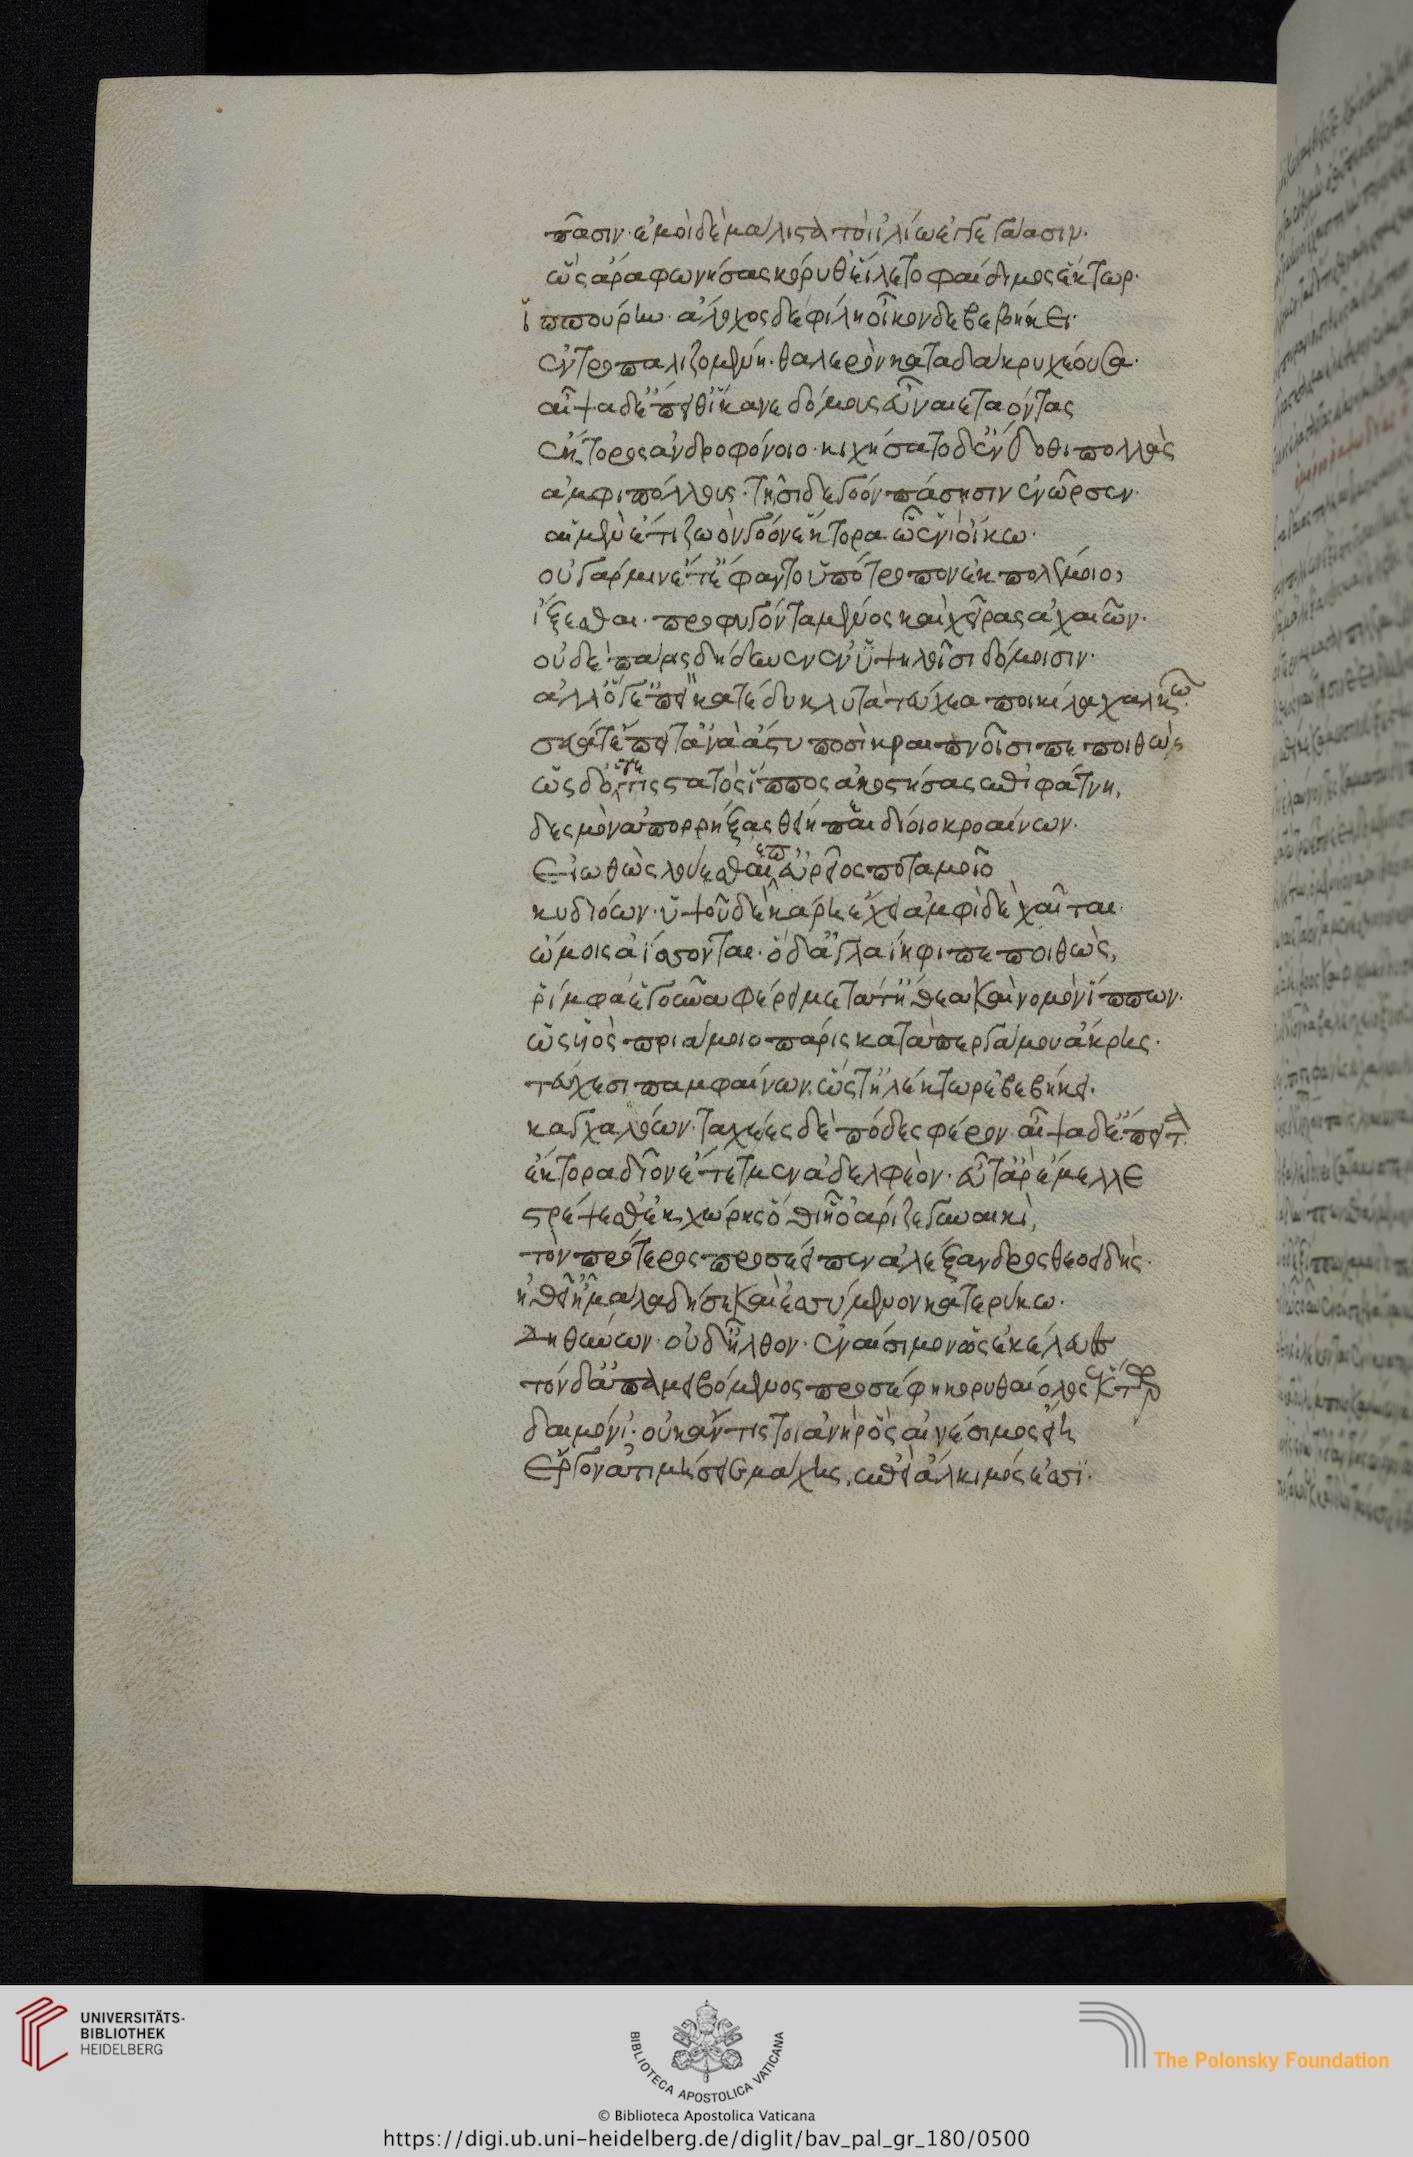 πᾶσιν· ἐμοὶ δὲ μάλιστα τοὶ ἰλίω ἐγγεγάασιν.
ὣς ἄρα φωνήσας κόρυθ' εἵλετο φαίδιμος ἕκτωρ·
ἵππουριν· ἄλοχος δὲ φίλη οἶκον δὲ βεβήκει·
ἐντροπαλιζομένη· θαλερὸν κατὰ δάκρυ χέουσα·
αἶψα δ' ἔπειθ' ἵκανε δόμους εὖ ναιετάοντας
ἕκτορος ἀνδροφόνοιο· κιχήσατο δ' ἔνδοθι πολλὰς
ἀμφιπόλους· τῆσι δὲ γόον πάσησιν ἐνῶρσεν·
αἱ μὲν ἔτι ζωὸν γόον ἕκτορα ὧ ἐνὶ οἴκω·
οὐ γάρ μιν ἔτ' ἔφαντο ὑπότροπον ἐκ πολέμοιο,
ἵξεσθαι· προφυγόντα μένος καὶ χεῖρας ἀχαιῶν·
οὐδὲ πάρις δήθυνεν ἐν ὑψηλοῖσι δόμοισιν·
ἀλλ' ὅγ' ἐπεὶ κατέδυ κλυτὰ τεύχεα ποικίλα χαλκῶ·
σεύατ' ἔπειτ' ἀνὰ ἄστυ ποσὶ κραιπνοῖσι πεποιθώς
ὡς δ' ὅτε τις στατὸς ἵππος ἀκοστήσας ἐπὶ φάτνη,
δεσμὸν ἀπορρήξας θείη πεδίοιο κροαίνων·
εἰωθὼς λούεσθαι ἐϋρρεῖος ποταμοῖο
κυδιόων· ὑψοῦ δὲ κάρη ἔχει ἀμφὶ δὲ χαῖται
ὤμοις ἀΐσσονται· ὁ δ' ἀγλαΐηφι πεποιθὼς,
ῥίμφα ἑ γοῦνα φέρει μετά τ' ἤθεα καὶ νομὸν ἵππων·
ὣς υἱὸς πριάμοιο πάρις κατὰ περγάμου ἄκρης·
τεύχεσι παμφαίνων. ὥς τ' ἠλέκτωρ ἐβεβήκει·
καγχαλόων· ταχέες δὲ πόδες φέρον· αἶψα δ' ἔπειτα
ἕκτορα δῖον ἔτετμεν ἀδελφεὸν· εὖτ' ἄρ' ἔμελλε
στρέψεσθ' ἐκ χώρης ὅθι ᾗ ὀάριζε γυναικὶ,
τὸν πρότερος προσέειπεν ἀλέξανδρος θεοειδής·
ἠθεῖ' ἦ μάλα δή σε καὶ ἐσσύμενον κατερύκω·
δηθύνων· οὐδ' ἦλθον· ἐναίσιμον ὡς ἐκέλευες
τὸν δ' ἀπαμειβόμενος προσέφη κορυθαίολος ἕκτωρ
δαιμόνι'· οὐκ ἄν τις τοι ἀνὴρ ὃς ἐναίσιμος εἴη
ἔργον ἀτιμήσειε μάχης, ἐπεὶ ἄλκιμός ἐσσι·
UNIVERSITÄTS-
BIBLIOTHEK
HEIDELBERG
BIBLIOTECA APOSTOLICA VATICANA
The Polonsky Foundation
© Biblioteca Apostolica Vaticana
https://digi.ub.uni-heidelberg.de/diglit/bav_pal_gr_180/0500